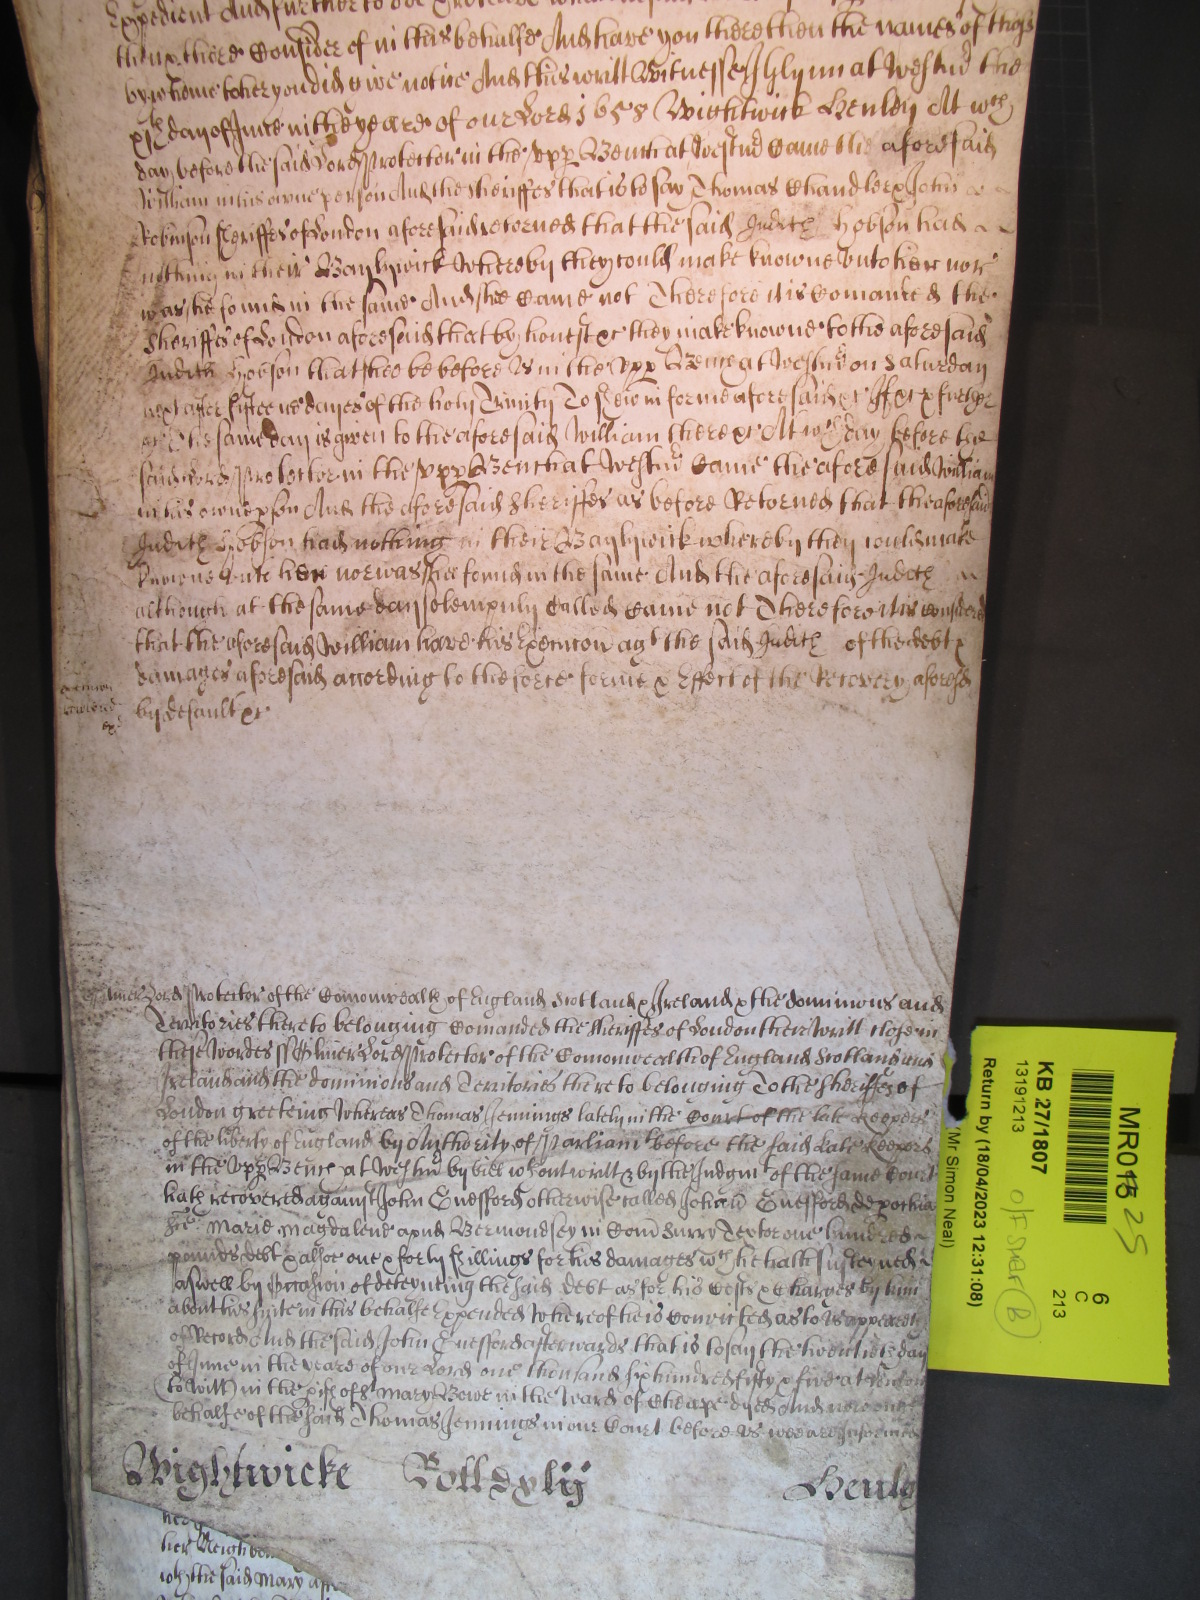 Expedient And further to doe & receive
then & there Consider of in this behalfe And have you there then the names of those
by whome to her you did give notice And this writt Witnesse J Glynn at Westmr the
xijth day of June in the yeare of our Lord 1658 Wightwick Henley At wch
day before the said Lord Protector in the upp Bench at Westmr Came the aforesaid
William in his owne person And the Sheriffes that is to say Thomas Chandler & John
Robinson sheriffes of London aforesaid retorned that the said Judith Hobson had
nothing in their Baylywick Whereby they could make knowne unto her nor
was she found in the same And she Came not Therefore it is Comanded the
Sheriffes of London aforesaid that by honest &c they make knowne to the aforesaid
Judith Hobson that shee be before Us in the upp Bench at Westmr on Saturday
next after fifteene dayes of the holy Trinity To shew in forme aforesaid &c If &c & further
&c The same day is given to the aforesaid William there &c At wch day before the
said Lord Protector in the upp Bench at Westmr Came the aforesaid William
in his owne pson And the aforesaid Sheriffes as before Retorned that the aforesaid
Judith Hobson had nothing in their Baylywick whereby they could make
knowne unto her nor was shee found in the same And the aforesaid Judith
although at the same day solempnly Called Came not Therefore it is considered
that the aforesaid William have his Execucon agt the said Judith of the debt &
damages aforesaid according to the force forme & Effect of the Recovery aforesd
by default &c
Oliver Lord Protector of the Comonwealth of England Scotland & Ireland & the dominions and
Territories thereto belonging Comanded the Sheriffes of London their writt closed in
these wordes ss Oliver Lord Protector of the Comonwealth of England Scotland and
Ireland and the dominions and Territories thereto belonging To the Sheriffes of
London greeteing Whereas Thomas Jennings lately in the Court of the late Keepers
of the liberty of England by Authority of Parliamt before the said late Keepers
in the Upp Bench at Westmr by bill wthout writt & by the Judgmt of the same Court
hath recovered against John Cuefford otherwise called Johem Cuefford de pochia
Sce Marie Magdalene apud Bermondsey in Com Surry Textor one hundred
pounds debt & allsoe one & forty shillings for his damages wch he hath susteyned
aswell by Occasion of deteyneing the said debt as for his Costs & Charges by him
about his suite in this behalfe Expended Whereof he is Convicted as to us appeareth
of Record And the said John Cuefford afterwards that is to say the twentieth day
of June in the yeare of our Lord one thousand six hundred fifty & five at London
(to witt) in the pish of St Mary Bowe in the Ward of Cheape dyed And now on the
behalfe of the said Thomas Jennings in our Court before Us wee are Informed
Wightwicke Roll dxlij Henly
her Neighbou
wch the said Mary aft
MR018 25
6
C
213
KB 27/1807
13191213
O/F Shelf (B)
Return by (18/04/2023 12:31:08)
Mr Simon Neal)